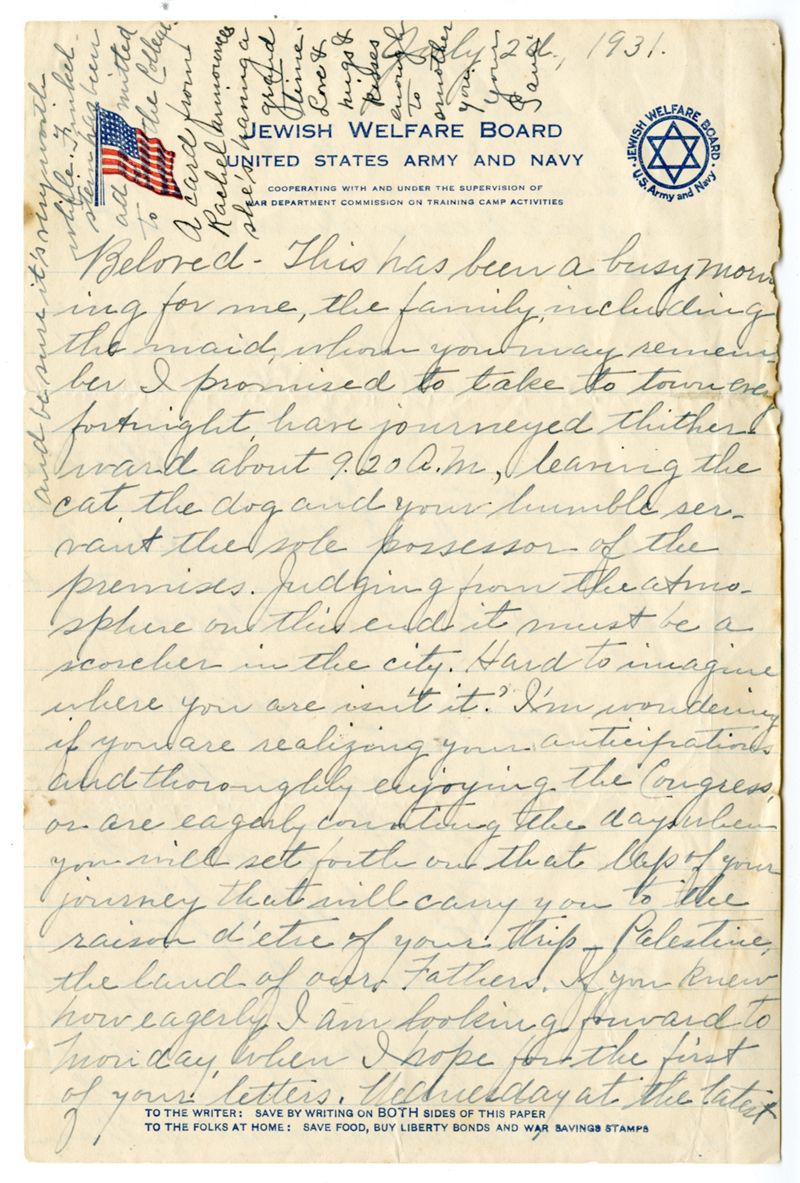 July 2d., 1931.
JEWISH WELFARE BOARD
UNITED STATES ARMY AND NAVY
COOPERATING WITH AND UNDER THE SUPERVISION OF
WAR DEPARTMENT COMMISSION ON TRAINING CAMP ACTIVITIES
JEWISH WELFARE BOARD
U.S. Army and Navy
Beloved - This has been a busy morn
ing for me, the family, including
the maid, whom you may remem
ber I promised to take to town every
fortnight, have journeyed thither
ward about 9.20 A.M., leaving the
cat the dog and your humble ser-
vant the sole possessor of the
premises. Judging from the atmo-
sphere on this end it must be a
scorcher in the city. Hard to imagine
where you are isn't it? I'm wondering
if you are realizing your anticipations
and thoroughly enjoying the Congress,
or are eagerly counting the days when
you will set forth on that lap of your
journey that will carry you to the
raison d'etre of your trip - Palestine,
the land of our Fathers. If you knew
how eagerly I am looking forward to
Monday, when I hope for the first
of your letters. Wednesday at the latest
TO THE WRITER: SAVE BY WRITING ON BOTH SIDES OF THIS PAPER
TO THE FOLKS AT HOME: SAVE FOOD, BUY LIBERTY BONDS AND WAR SAVINGS STAMPS
and be sure it's very worth
while.
stein has been
admitted
to the College.
A card from
Rachel announces
she's having a
grand
time.
Love &
hugs &
kisses
enough
to
smother
you.
Your